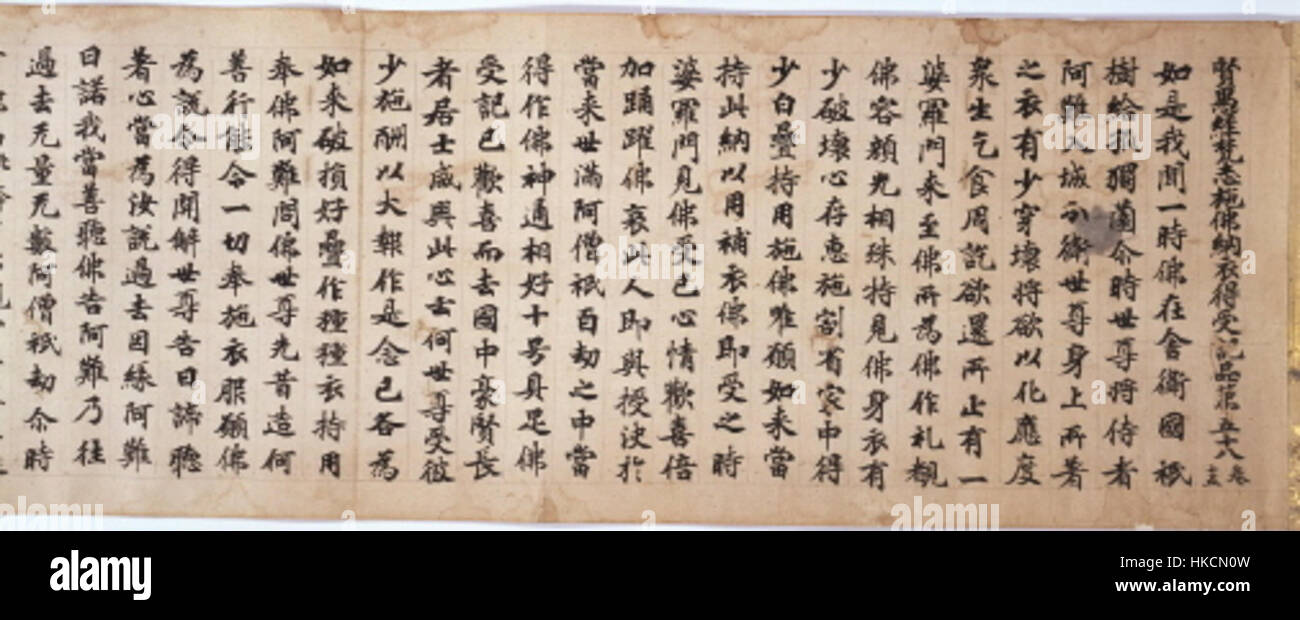 賢愚經梵志施佛納衣得受記品第五十八 卷十五
如是我聞一時佛在舍衛國祇
樹給孤獨薗尒時世尊將侍者
阿難入城分衛世尊身上所著
之衣有少穿壞將欲以化應度
衆生乞食周訖欲還所止有一
婆羅門来至佛所為佛作礼覩
佛容顏光相殊持見佛身衣有
少破壞心存惠施割省家中得
少白疊持用施佛唯願如来當
持此納以用補衣佛即受之時
婆羅門見佛受已心情歡喜倍
加踊躍佛哀此人即與授決於
當来世滿阿僧祇百劫之中當
得作佛神通相好十号具足佛
受記已歡喜而去國中豪賢長
者居士咸興此心云何世尊受彼
少施酬以大報作是念已各為
如来破損好疊作種種衣持用
奉佛阿難問佛世尊先昔造何
善行能令一切奉施衣服願佛
為說令得開解世尊告曰諦聽
著心當為汝說過去因緣阿難
曰諾我當善聽佛告阿難乃往
過去无量无數阿僧祇劫尒時
alamy
Image ID: HKCN0W
www.alamy.com